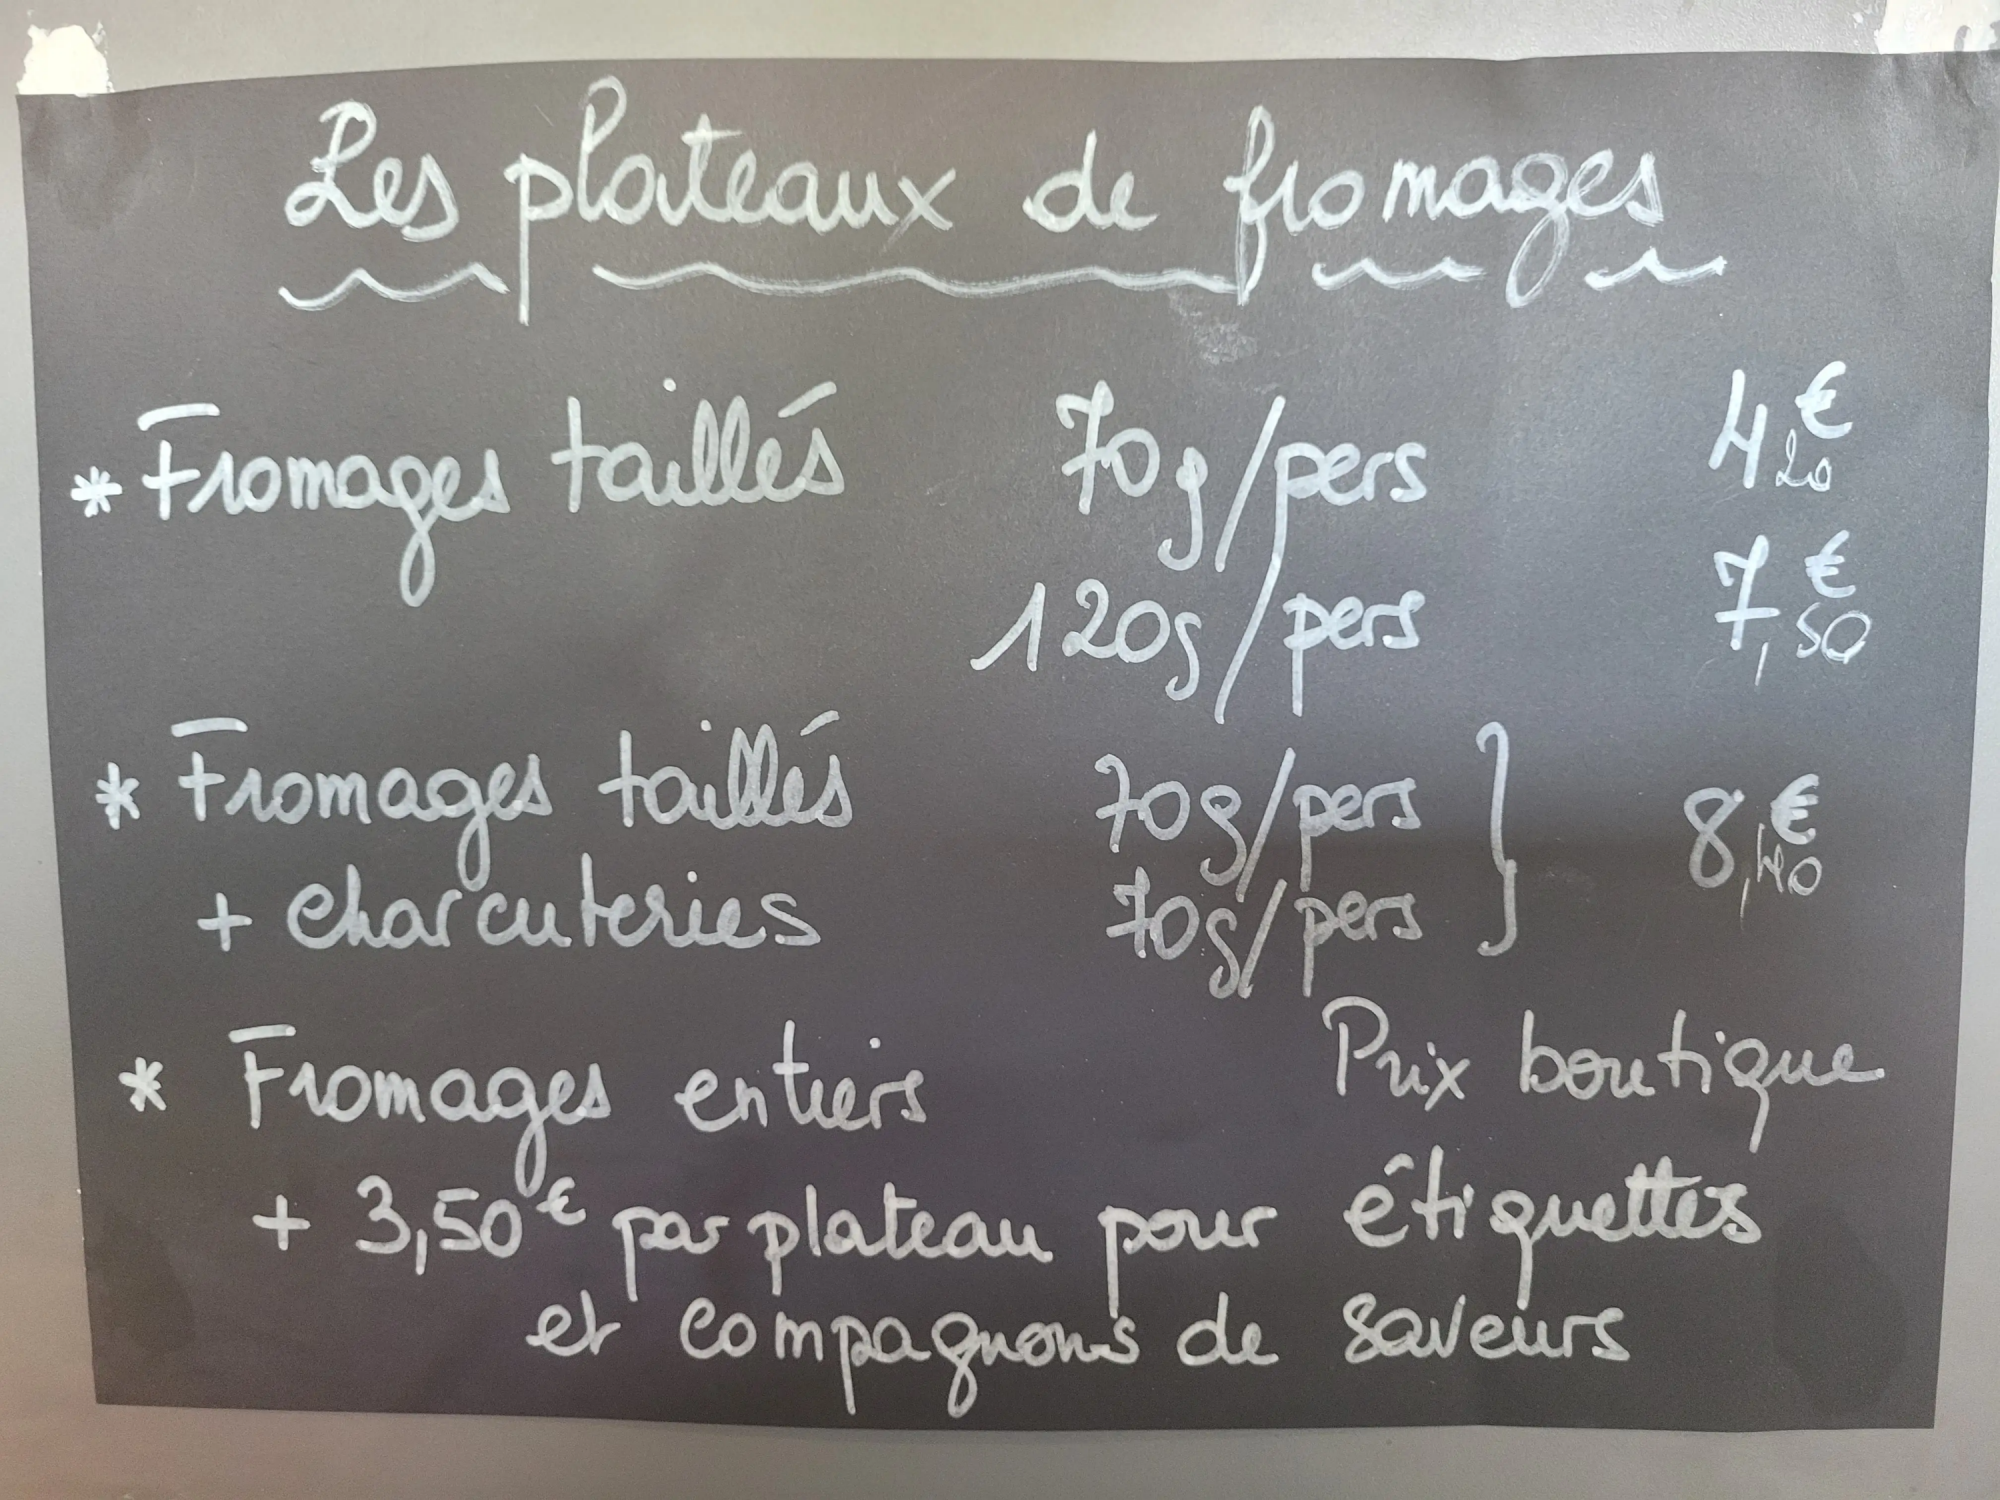 Les plateaux de fromages
* Fromages taillés 70g/pers 4€20
120g/pers 7,€50
* Fromages taillés 70g/pers } 8,€40
+ charcuteries 70g/pers
* Fromages entiers Prix boutique
+ 3,50€ par plateau pour étiquettes
et compagnons de saveurs